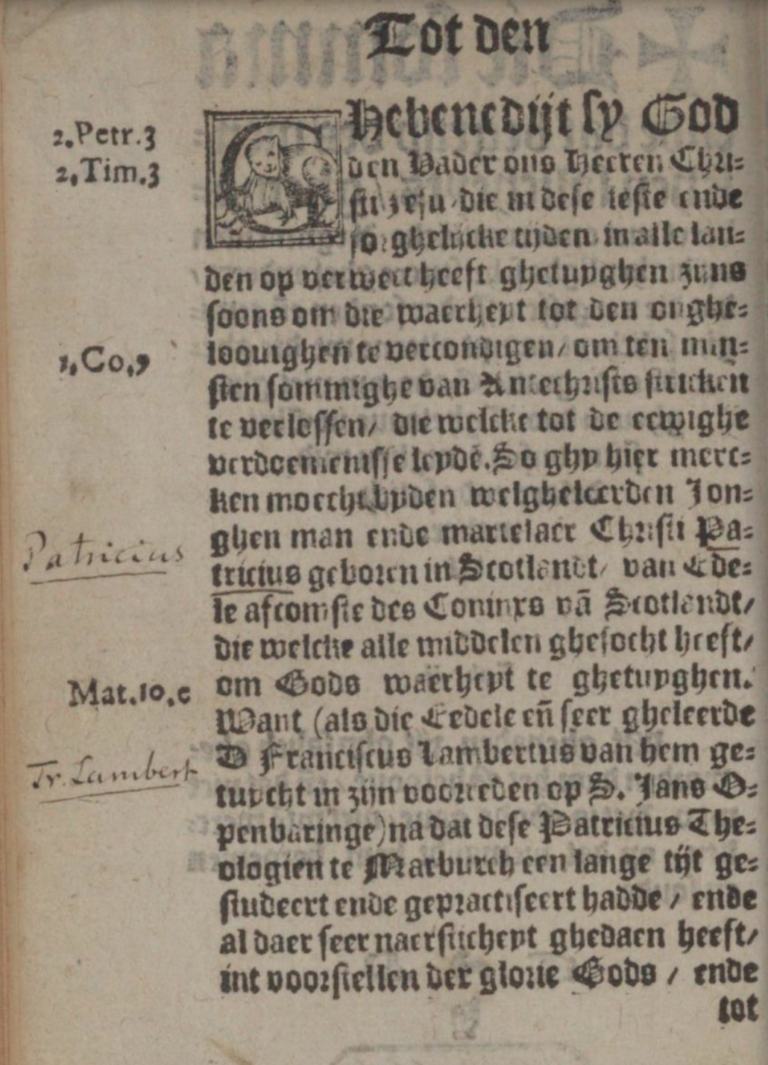 Tot den
GHebenedijt sy God
2.Petr.3
den Vader ons Heeren Chri-
2.Tim.3
sti Jesu/ die in dese leste ende
sorghelijcke tijden in alle lan-
den op verwect heeft ghetuyghen zijns
soons om die waerheyt tot den onghe-
loouighen te vercondigen/ om ten min-
1.Co.9
sten sommighe van Antechrists stricken
te verlossen/ die welcke tot de eewighe
verdoemenisse leydē. So ghy hier merc-
ken moecht byden welgheleerden Jon-
ghen man ende martelaer Christi Pa-
Patricius
tricius geboren in Scotlandt/ van Ede-
le afcomste des Coninxs vā Scotlandt/
die welcke alle middelen ghesocht heeft/
om Gods waerheyt te ghetuyghen.
Mat.10.c
Want (als die Eedele eñ seer gheleerde
D Franciscus Lambertus van hem ge-
Fr. Lambert
tuycht in zijn voorreden op S. Jans O-
penbaringe) na dat dese Patricius The-
ologien te Marburch een lange tijt ge-
studeert ende gepractiseert hadde / ende
al daer seer naerstichept ghedaen heeft/
int voorstellen der glorie Gods / ende
tot